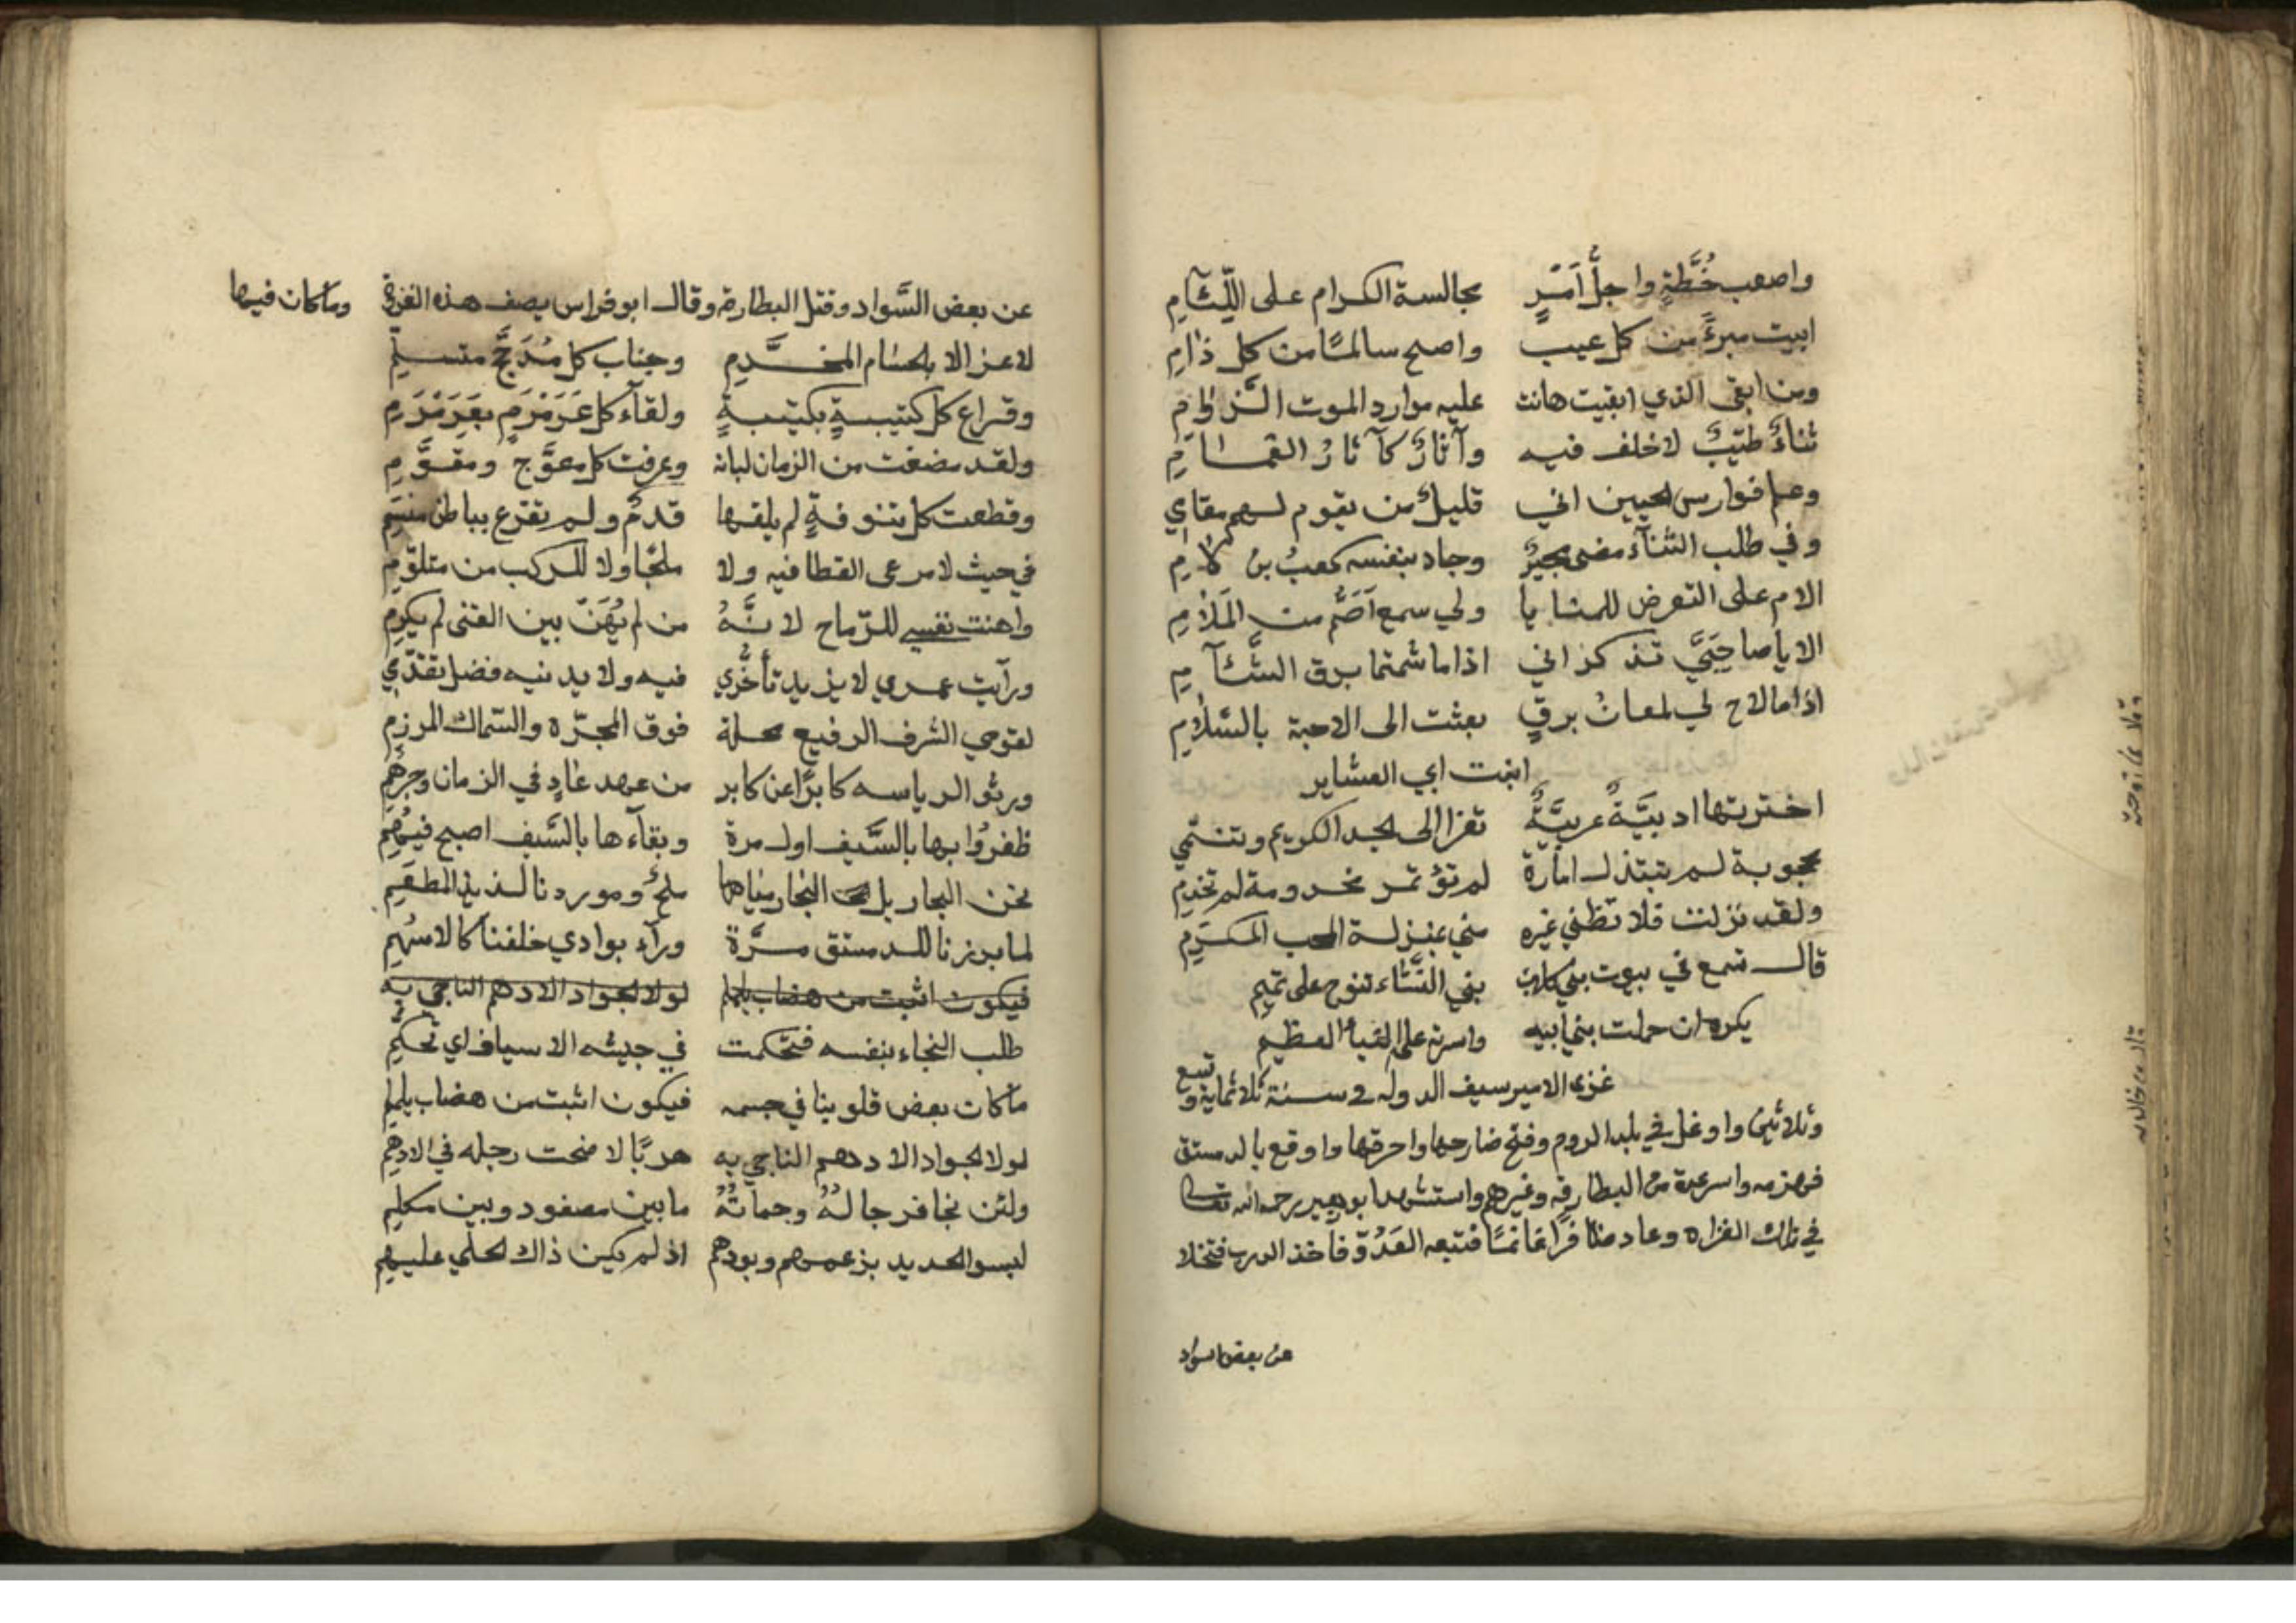 واصعب خُطَّةٍ واجلُّ اَمْرٍ مجالسة الكرام على اللِّئآمِ
ابيت مبرءً من كل عيب واصبح سالمًا من كل ذامِ
ومن ابقى الذي ابقيت هانت عليه موارد الموت الزُّوامِ
ثناءٌ طيّبٌ لاخلف فيه وآثارٌ كآثارُ الغمامِ
وعلم فوارس الحيين اني قليلٌ من يقوم لهم مقامي
وفي طلب الثنآء مضى بجيرٌ وجاد بنفسه كعبُ بنُ لامِ
الام على التعرض للمنايا ولي سمع اَصَمُّ من المَلامِ
الا يا صاحِبَيَّ تذكراني اذا ما شمتما برق الشَّآمِ
اذا ما لاح لي لمعانُ برقٍ بعثت الى الاحبة بالسّلامِ
ابنت ابي العشاير
اخترتها ادبيَّةً عربيَّةً تعزا الى الجد الكريم وتنتمي
محجوبة لم تبتذل امارة لم تؤتمر مخدومة لم تخدمِ
ولقد نزلت فلا تظني غيره مني بمنزلة المحب المكرَمِ
قال تسمع في بيوت بني كلاب بني النّساء تنوح على تميمِ
يكره ان حملت بني ابيه واسرته على العظيم
غزى الامير سيف الدوله في سنة ثلاثماية وتسع
وثلاثين واوغل في بلد الروم وفتح ضارحها واحرقها واوقع بالدمستق
فهزمه واسر عدة من البطارقه وغيرهم واستشهد ابو بجير رحمه الله تعالى
في تلك الغزاه وعاد ظافرًا غانمًا فتبعه العَدُوّ فاخذ الدرب فتخلا
عن بعض السواد
عن بعض السَّواد وقتل البطارقة وقال ابو فراس يصف هذه الغزوة وما كان فيها
لا عز الا بالحسام المخذَّمِ وجناب كل مُدَجَّج متسلمِ
وقراع كل كتيبةٍ بكتيبةٍ ولقآء كل عَرَمْرَمٍ بعَرَمْرَمِ
ولقد مضغت من الزمان لبانه وعرفت كل معوَّج ومقوَّمِ
وقطعت كل تنوفةٍ لم يلقها قدمٌ ولم تقرع بباطن منسَمِ
في حيث لا مرعى القطا فيه ولا ملجًا ولا للركب من متلوّمِ
واهنت نفسي للرّماح لانَّهُ من لم يُهَنّ بين القنى لم يكرمِ
ورآيت عمري لا يزيد تأخُّري فيه ولا يدنيه فضل تقدّمي
لقومي الشرف الرفيع محلة فوق المجرّة والسّماك المرزمِ
ورثو الرياسه كابرًا عن كابر من عهد عادٍ في الزمان وجرهُمِ
ظفرُوا بها بالسَّيف اول مرة وبقآءها بالسَّيف اصبح فيهُمِ
نحن البحار بل البحار مياهها ملحٌ وموردنا لذيذ المطعَمِ
لما برزنا للدمستق مرَّة ورآء بوادي خلفنا كالاسهُمِ
فيكون اثبت من هضاب يلملم لولا الجواد الادهم الناجي به
طلب النجاء بنفسه فتحكمت في جيشه الاسياف اي تحكمِ
ما كان بعض قلوبنا في جسمه فيكون اثبت من هضاب يلملمِ
لولا الجواد الادهم الناجي به هربًا لاضحت رجله في الادهمِ
ولئن نجا فرجالهُ وحماتُهُ ما بين مصفود وبين مكلمِ
لبسو الحديد بزعمهم وبودهم اذ لم يكن ذاك الحلي عليهمِ